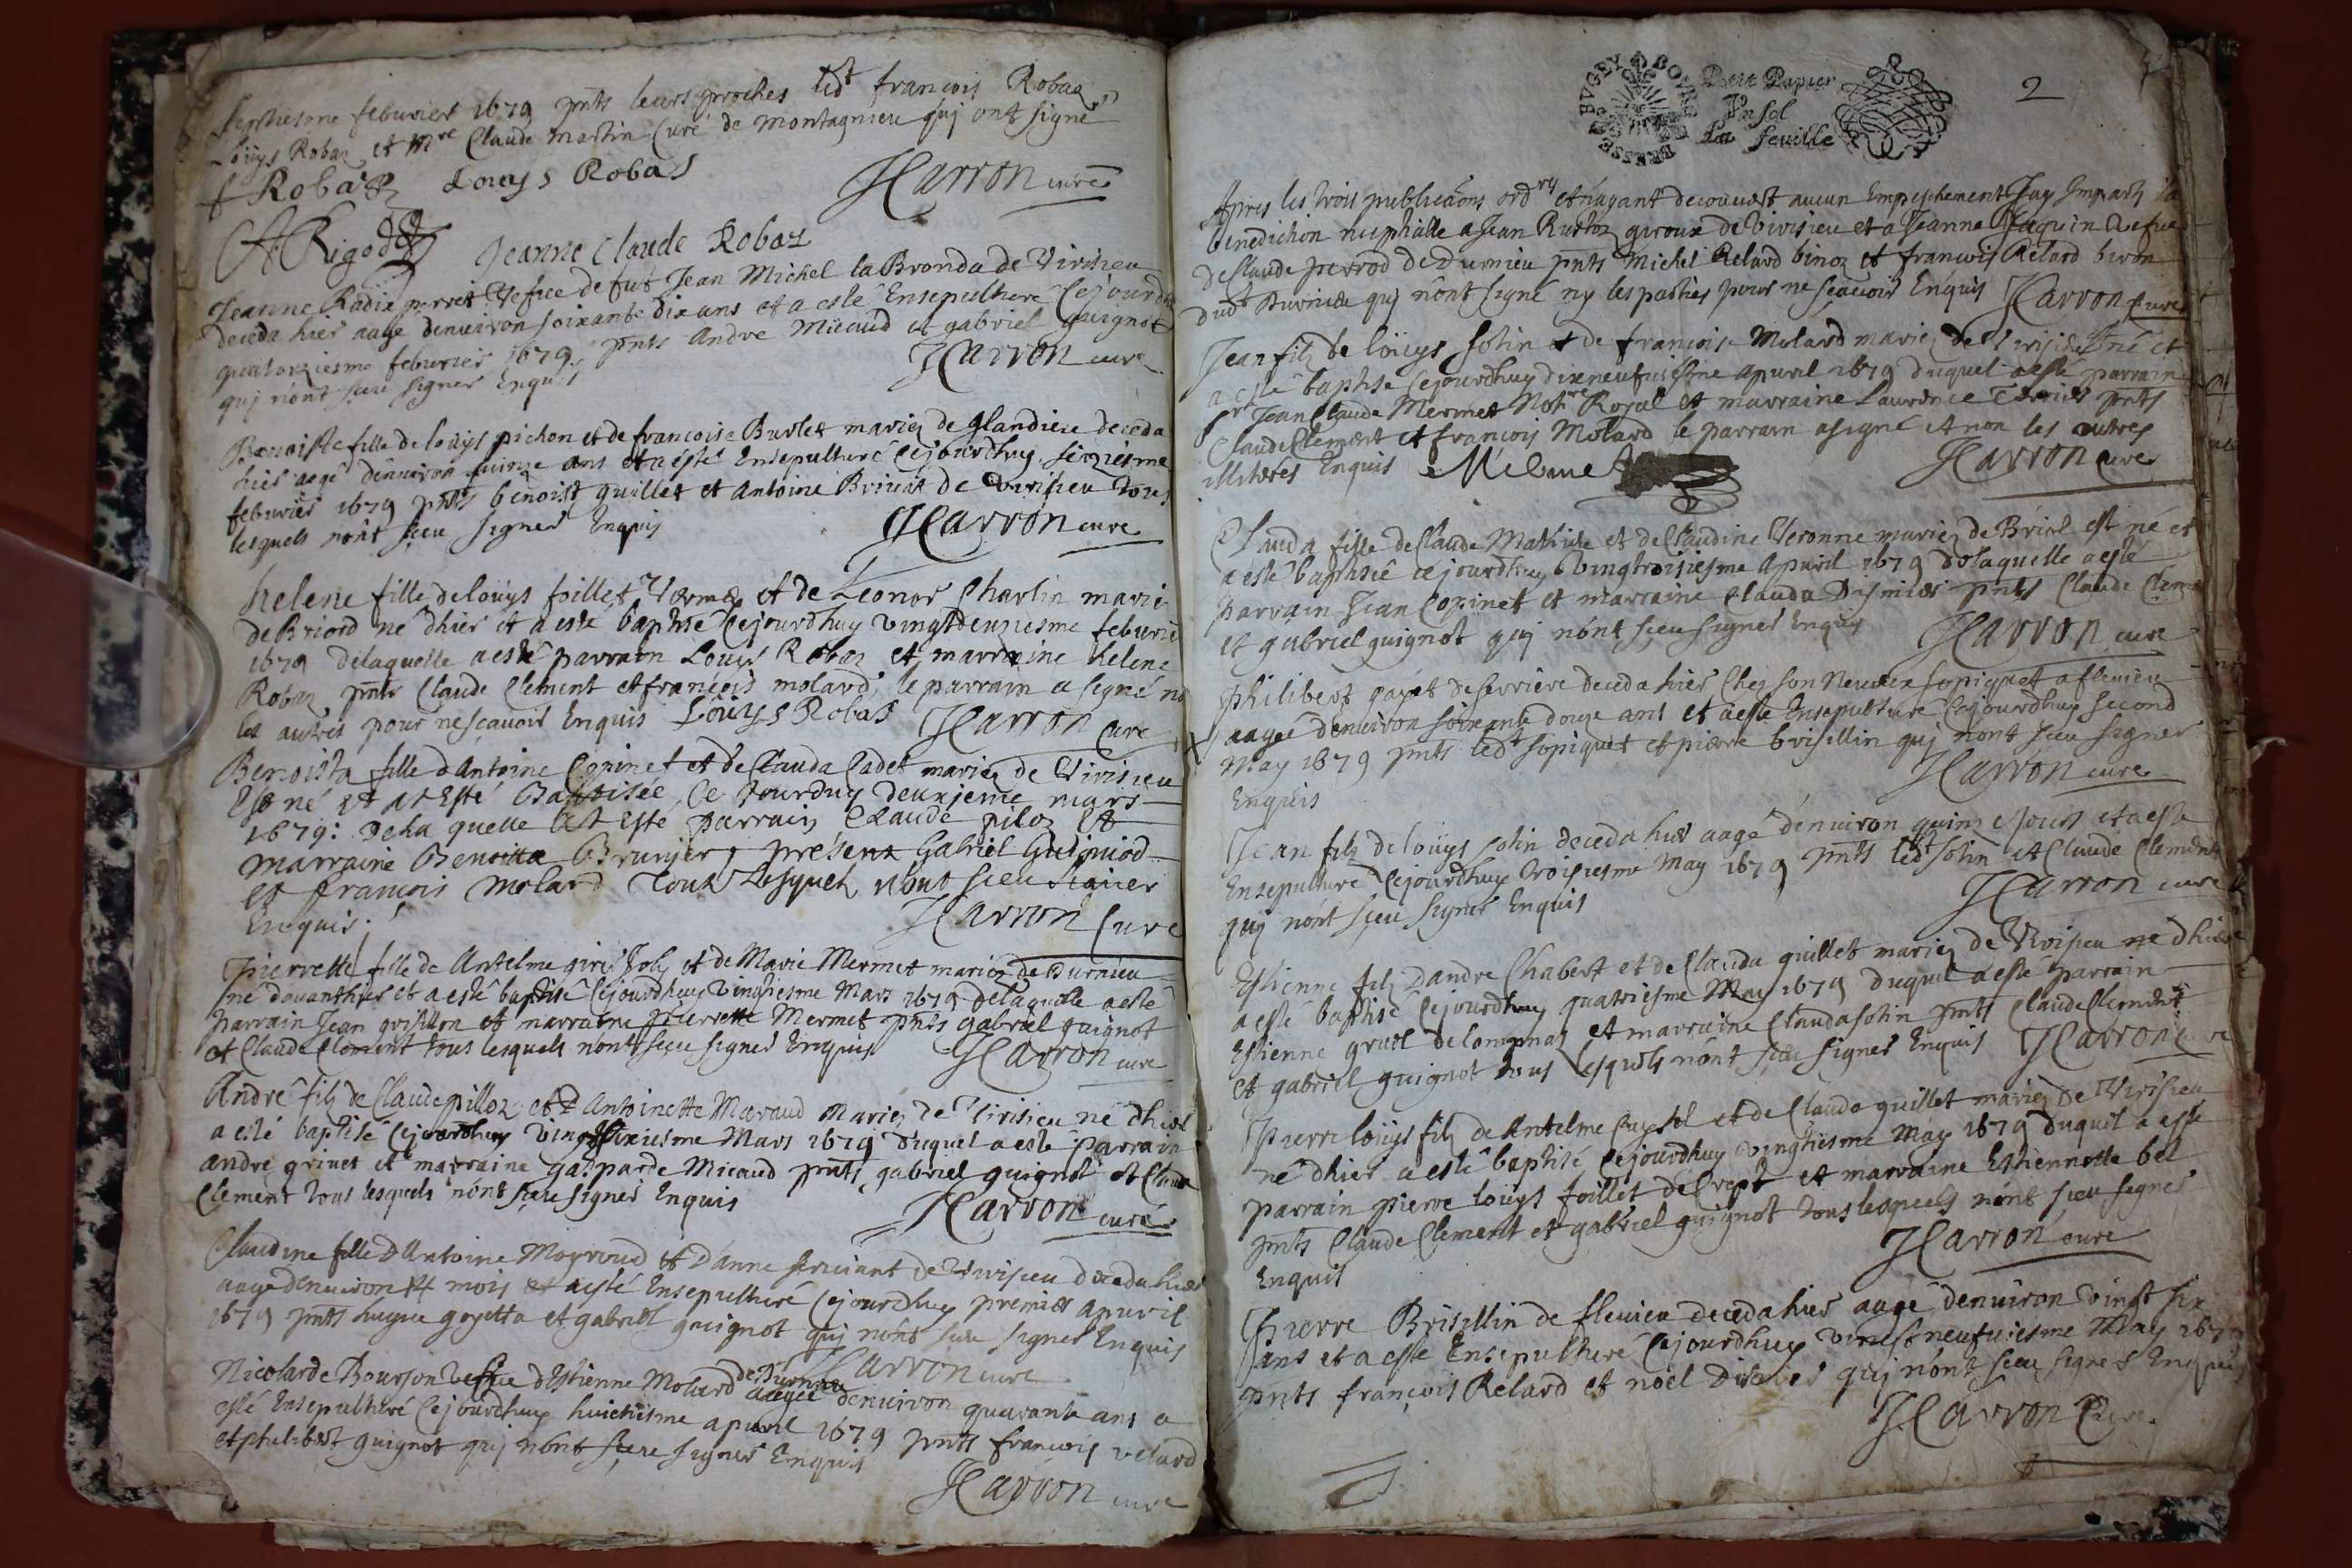 septiesme feburier 1679 pnts leurs proches led^t françois Robaz
Loüys Robaz et M^re Claude martin Curé de Montagnieu quj ont signé
f Robaz Louys Robas
JCarron curé
A Rigod Jeanne Claude Robaz
Jeanne Radix perret Vefue de fut Jean Michel la Bronda de Virisieu
deceda hier aage denuiron soixante dix ans et a esté Ensepulturé Cejourdhuy
quatorziesme feburier 1679 pnts Andre Micaud et gabriel guignot
quj nónt sceu signer Enquis JCarron cure
Benoiste fille de loüys pichon et de francoise Burlet mariez de glandieu deceda
hier aagé denuiron quinze ans et a esté Ensepulturé Cejourdhuy seiziesme
feburier 1679 pnts benoist guillet et Antoine Brinat de Virisieu tous
lesquels nónt sceu signer Enquis JCarron cure
helene fille de loüys foillet et de Leonor Charlin mariez
de Briord né dhier et a esté baptisé Cejourdhuy vingtdeuxiesme feburier
1679 delaquelle a esté parrain Louys Robaz et marraine helene
Robaz pnts Claude Clement et françois molard, le parrain a signé no
les autres pour nesçauoir Enquis Loüys Robas JCarron cure
Benoista fille dAntoine Copinet et de Clauda Cadet mariez de Virisieu
Est né et at Esté Baptisée, Ce Jourduy deuxjeme mars
1679: De la quelle at Esté parrain Claude piloz Et
marraine Benoitta Brunjer, présent Gabriel Guigniod
et francois molard Tous Lesquels nont sceu signer
Enquis JCarron Cure
Pierrette fille de Antelme giri Joly et de Marie Mermet mariez de Durnieu
né dauanthier et a esté baptisé Cejourdhuy vingtiesme Mars 1679 delaquelle a esté
parrain Jean grisillon et marraine pierrette Mermet pnts gabriel guignot
et Claude Clement tous lesquels nont sceu signer Enquis JCarron cure
André filz de Claude pilloz et dAntoinette Maraud Mariez de Virisieu né dhier
a esté baptisé Cejourdhuy vingtsixiesme Mars 1679 duquel a esté parrain
andré grinet et marraine gasparde Micaud pnts gabriel guignot et Claude
Clement tous lesquels nónt sceu signer Enquis JCarron curé
Claudine fille DAntoine Moyroud et Danne seruiant de Virisieu deceda hier
aagé denuiron mois et a esté Ensepulturé Cejourdhuy premier apuril
1679 pnts hugue goyetta et gabriel guignot quj nónt sceu signer Enquis
JCarron cure
Nicolarde Bourson vefue dEstienne Molard de Durnieu aagée denuiron quarante ans a
esté Ensepulturé Cejourdhuy huictiesme apuril 1679 pnts françois relard
et philibert guignot quj nónt sceu signer Enquis
JCarron cure
BRESSE BVGEY BOVRG
Petit Papier
Vn sol
La feuille
2
Apres les trois publicãons ord^res et n'ayant decouuert aucun Empeschement Jay Imparty la
benediction nupthialle a Jean Rustoz giroux de Virisieu et a Jeanne Jacquin Vefue
de Claude perrod de Durnieu pnts Michel Relard binoz et francois Relard biron
dud^t Durnieu quj nónt signé ny les parties pour ne sçauoir Enquis JCarron Cure
Jean filz de loüys sotin et de françoise Molard mariez de Virisieu né et
a esté baptise Cejourdhuy dixneufuiesme apuril 1679 duquel a esté parrain
s^r Jean Claude Mermet Not^re Royal et marraine Laurence pnts
Claude Clement et françois Molard le parrain a signé et non les autres
illiteres Enquis Mermet JCarron cure
Clauda fille de Claude Mathieu et de Claudine Veronne mariez de Briord est né et
a esté baptisé cejourdhuy vingtroisiesme Apuril 1679 delaquelle a esté
parrain Jean Copinet et marraine Clauda Dismier pnts Claude Clement
et gabriel guignot quj nónt sceu signer Enquis JCarron cure
Philibert payet de serriere deceda hier Chez son Neueu sopiquet a fleuieu
aagé denuiron soixante douze ans et a esté Ensepulturé Cejourdhuy second
May 1679 pnts led^t sopiquet et pierre brisillin quj nont sceu signer
Enquis JCarron cure
Jean filz de loüys sotin deceda hier aagé denuiron quinze jours et a esté
Ensepulturé Cejourdhuy troisiesme May 1679 pnts led^t sotin et Claude Clement
quj nónt sceu signer Enquis JCarron cure
Estienne filz Dandre Chabert et de Clauda guillet mariez de Virisieu né dhier
a esté baptisé Cejourdhuy quatriesme May 1679 duquel a esté parrain
Estienne gruel de lompnas et marraine Clauda sotin pnts Claude Clement
et gabriel guignot tous lesquels nónt sceu signer Enquis JCarron cure
Pierre loüys filz de Antelme Cuysel et de Clauda guillet mariez de Virisieu
né dhier a esté baptisé Cejourdhuy vingtiesme May 1679 duquel a esté
parrain pierre loüys foillet de Crept et marraine Estiennette bel
pnts Claude Clement et gabriel guignot tous lesquels nónt sceu signer
Enquis JCarron cure
Pierre Brisillin de fleuieu deceda hier aagé denuiron vingt six
ans et a esté Ensepulturé Cejourdhuy vingtneufuiesme May 1679
pnts françois Relard et noël quj nónt sceu signer Enquis
JCarron Cure